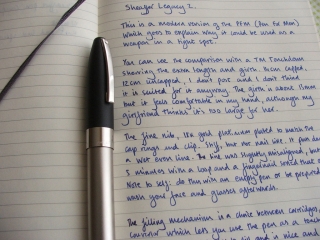 Sheaffer Legacy 2.
This is a modern version of the PFM (Pen for Men)
which goes to explain why it could be used as a
weapon in a tight spot.
You can see the comparison with a TM Touchdown
showing the extra length and girth. 14cm capped,
12cm uncapped, I don't post and I don't think
it is suited for it anyway. The girth is about 13mm
but it feels comfortable in my hand, although my
girlfriend thinks it's too large for her.
The fine nib, 18k gold, platinum plated to match the
cap rings and clip. Stiff, but not nail like. It puts down
a wet even line. The tine was slightly misaligned, but
3 minutes with a loop and a fingernail sorted that out
Note to self: do this with an empty pen or be prepared
wash your face and glasses afterwards.
The filling mechanism is a choice between cartridges,
conv which lets you use the pen as a touch
lid and is nice and